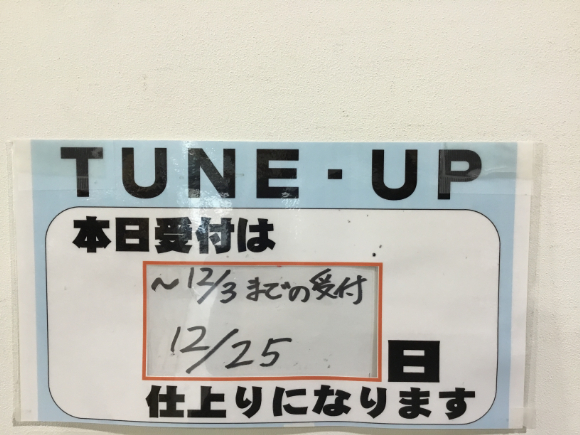 TUNE-UP
本日受付は
~12/3までの受付
12/25
日
仕上りになります